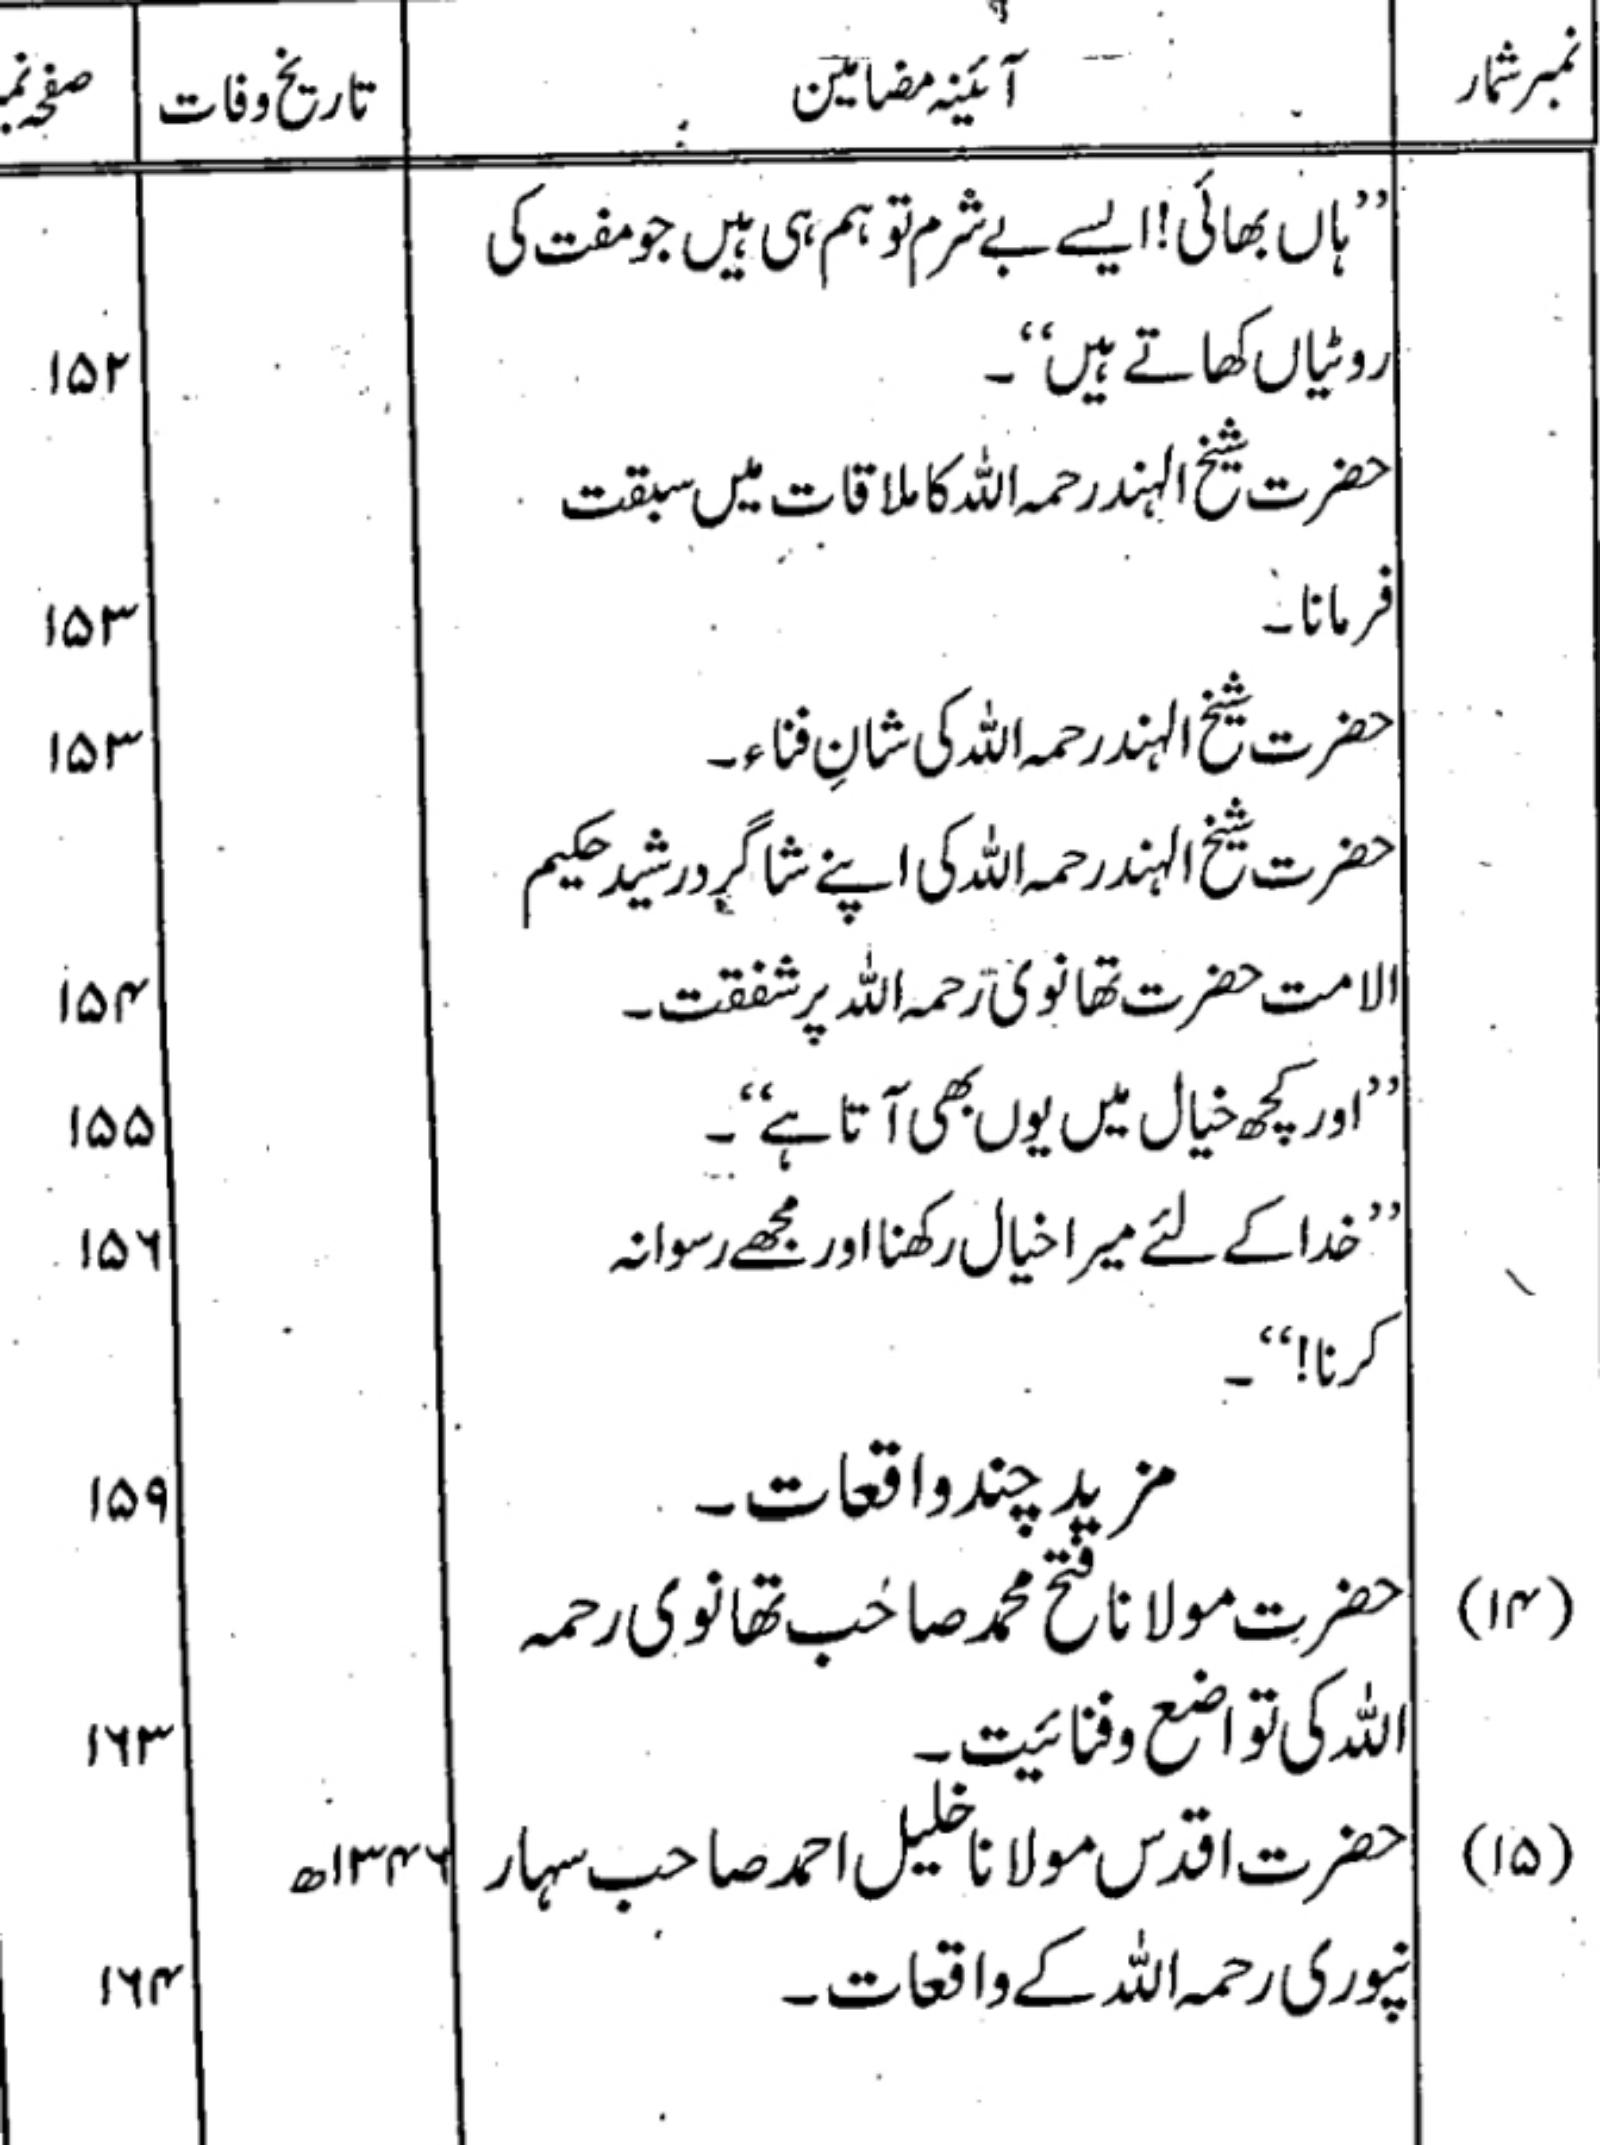 نمبر شمار آئینہ مضامین تاریخ وفات صفحہ
’’ہاں بھائی! ایسے بے شرم تو ہم ہی ہیں جو مفت کی
روٹیاں کھاتے ہیں‘‘۔ ۱۵۲
حضرت شیخ الہند رحمہ اللہ کا ملاقات میں سبقت
فرمانا۔ ۱۵۳
حضرت شیخ الہند رحمہ اللہ کی شانِ فناء۔ ۱۵۳
حضرت شیخ الہند رحمہ اللہ کی اپنے شاگردِ رشید حکیم
الامت حضرت تھانوی رحمہ اللہ پر شفقت۔ ۱۵۴
’’اور کچھ خیال میں یوں بھی آتا ہے‘‘۔ ۱۵۵
’’خدا کے لئے میرا خیال رکھنا اور مجھے رسوا نہ ۱۵۶
کرنا!‘‘۔
مزید چند واقعات۔ ۱۵۹
(۱۴) حضرت مولانا فتح محمد صاحب تھانوی رحمہ
اللہ کی تواضع وفنائیت۔ ۱۶۳
(۱۵) حضرت اقدس مولانا خلیل احمد صاحب سہار ۱۳۴۶ھ
نپوری رحمہ اللہ کے واقعات۔ ۱۶۴